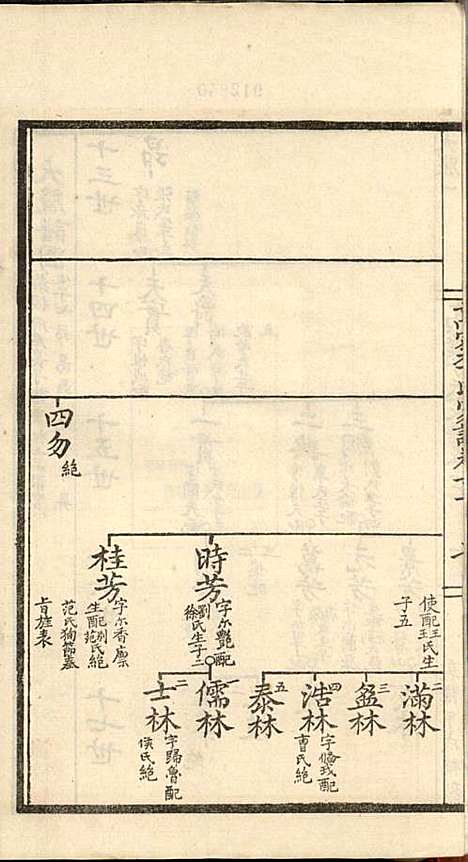 四勿
絕
時芳
字尔艷配
劉氏生子二
徐
桂芳
字尔香廪
生配劉氏絕
范
范氏狥節墓
旨旌表
使配王氏生
子五
二
滿林
三
盈林
四
浩林
字脩我配
曹氏絕
五
泰林
一
儒林
二
士林
字歸魯配
侯氏絕